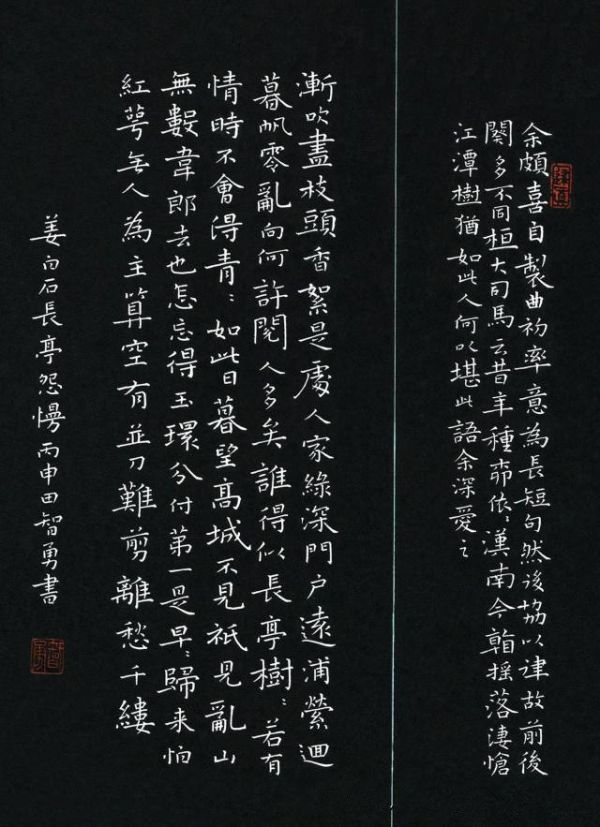 余頗喜自製曲初率意為長短句然後協以律故前後
闋多不同桓大司馬云昔年種柳依〻漢南今看摇落淒愴
江潭樹猶如此人何以堪此語余深愛之
漸吹盡枝頭香絮是處人家綠深門户遠浦縈迴
暮帆零亂向何許閱人多矣誰得似長亭樹〻若有
情時不會得青〻如此日暮望髙城不見衹見亂山
無數韋郎去也怎忘得玉環分付第一是早〻歸来怕
紅萼无人為主算空有並刀難剪離愁千縷
姜白石長亭怨慢丙申田智勇書
智勇